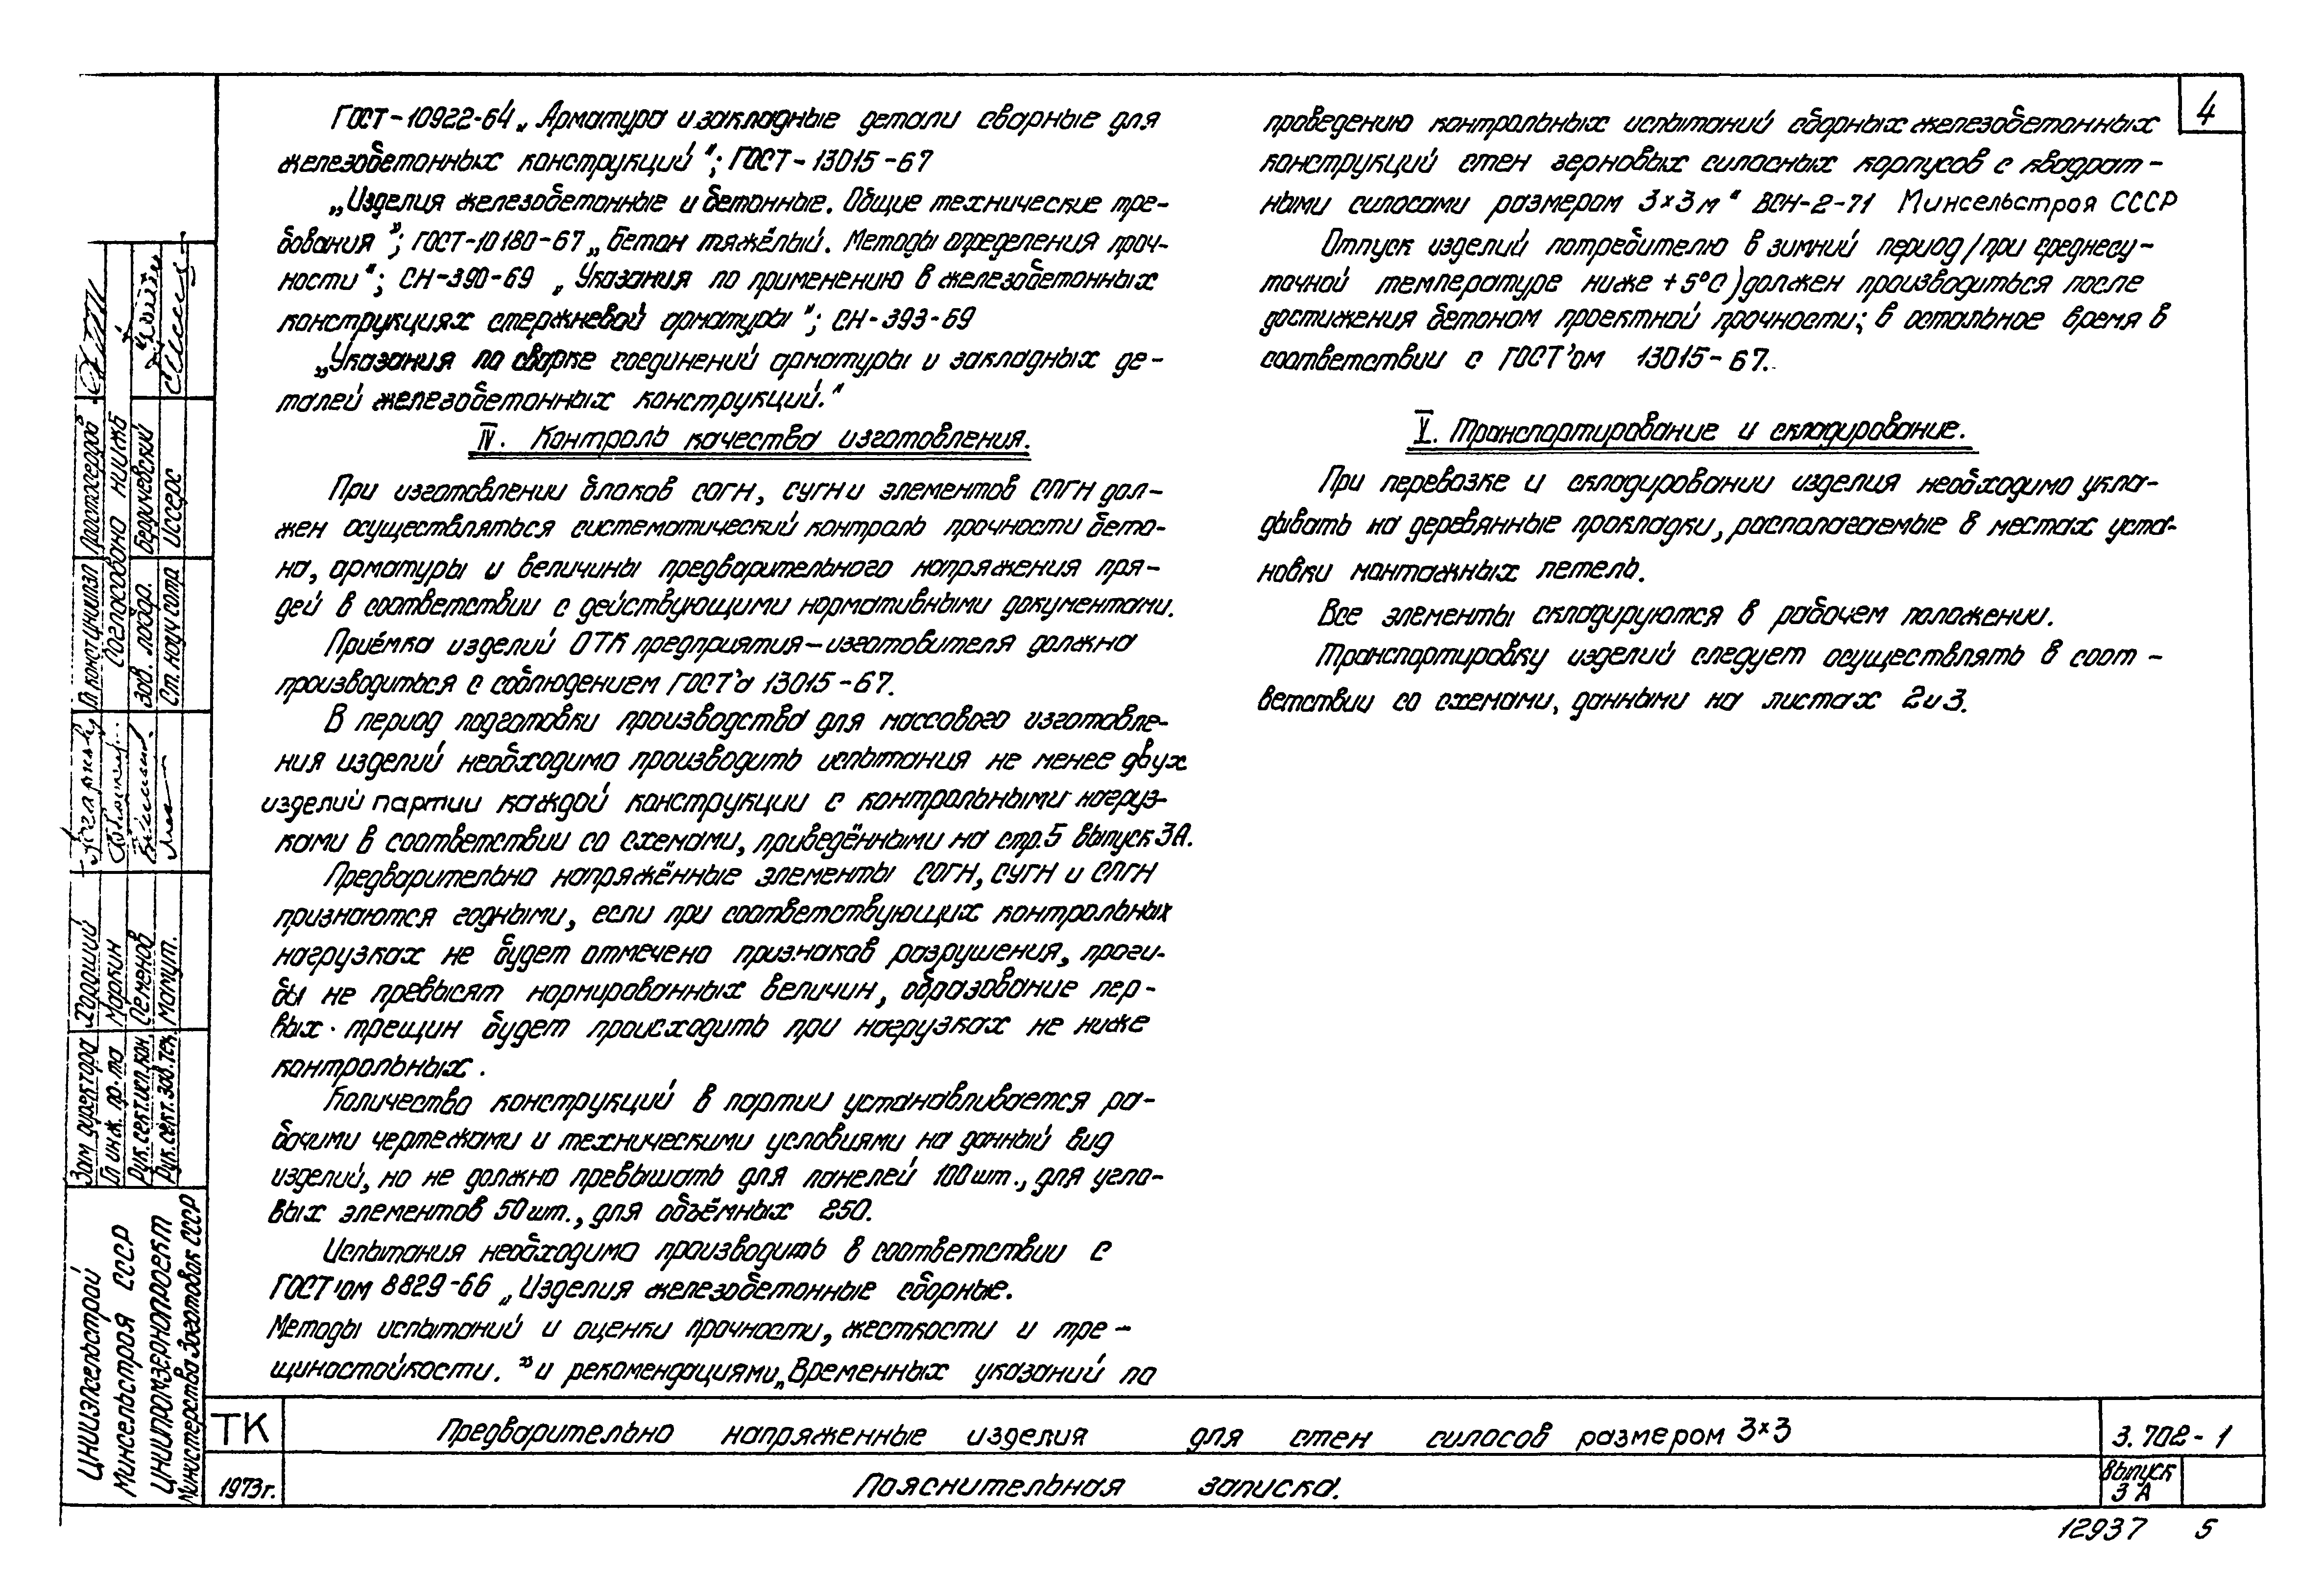 4
ГОСТ-10922-64 „Арматура и закладные детали сварные для
железобетонных конструкций"; ГОСТ-13015-67
„Изделия железобетонные и бетонные. Общие технические тре-
бования"; ГОСТ-10180-67 „Бетон тяжёлый. Методы определения проч-
ности"; СН-390-69 „Указания по применению в железобетонных
конструкциях стержневой арматуры"; СН-393-69
„Указания по сварке соединений арматуры и закладных де-
талей железобетонных конструкций."
IV. Контроль качества изготовления.
При изготовлении блоков СОГН, СУГН и элементов СПГН дол-
жен осуществляться систематический контроль прочности бето-
на, арматуры и величины предварительного напряжения пря-
дей в соответствии с действующими нормативными документами.
Приёмка изделий ОТК предприятия-изготовителя должна
производиться с соблюдением ГОСТ'а 13015-67.
В период подготовки производства для массового изготовле-
ния изделий необходимо производить испытания не менее двух
изделий партии каждой конструкции с контрольными нагруз-
ками в соответствии со схемами, приведёнными на стр.5 выпуск 3А.
Предварительно напряжённые элементы СОГН, СУГН и СПГН
признаются годными, если при соответствующих контрольных
нагрузках не будет отмечено признаков разрушения, проги-
бы не превысят нормированных величин, образование пер-
вых трещин будет происходить при нагрузках не ниже
контрольных.
Количество конструкций в партии устанавливается ра-
бочими чертежами и техническими условиями на данный вид
изделий, но не должно превышать для панелей 100шт., для угло-
вых элементов 50шт., для объёмных 250.
Испытания необходимо производить в соответствии с
ГОСТ'ом 8829-66 „Изделия железобетонные сборные.
Методы испытаний и оценки прочности, жесткости и тре-
щиностойкости." и рекомендациями „Временных указаний по
проведению контрольных испытаний сборных железобетонных
конструкций стен зерновых силосных корпусов с квадрат-
ными силосами размером 3×3м" ВСН-2-71 Минсельстроя СССР
Отпуск изделий потребителю в зимний период /при среднесу-
точной температуре ниже +5°С) должен производиться после
достижения бетоном проектной прочности; в остальное время в
соответствии с ГОСТ'ом 13015-67.
V. Транспортирование и складирование.
При перевозке и складировании изделия необходимо укла-
дывать на деревянные прокладки, располагаемые в местах уста-
новки монтажных петель.
Все элементы складируются в рабочем положении.
Транспортировку изделий следует осуществлять в соот-
ветствии со схемами, данными на листах 2 и 3.
ЦНИИЭПсельстрой
Минсельстроя СССР
ЦНИИПРОМЗЕРНОПРОЕКТ
Министерства Заготовок СССР
Зам директора
Гл инж. пр-та Маркин
Рук.сект.исп.кон. Семенов
Рук.сект.зав.тех. Мамут.
Согласовано НИИЖБ
Зав. лабор. Бердичевский
Ст. науч сотр Иссерс
ТК
1973г.
Предварительно напряженные изделия для стен силосов размером 3×3
Пояснительная записка.
3.702-1
Выпуск
3 А
12937 5